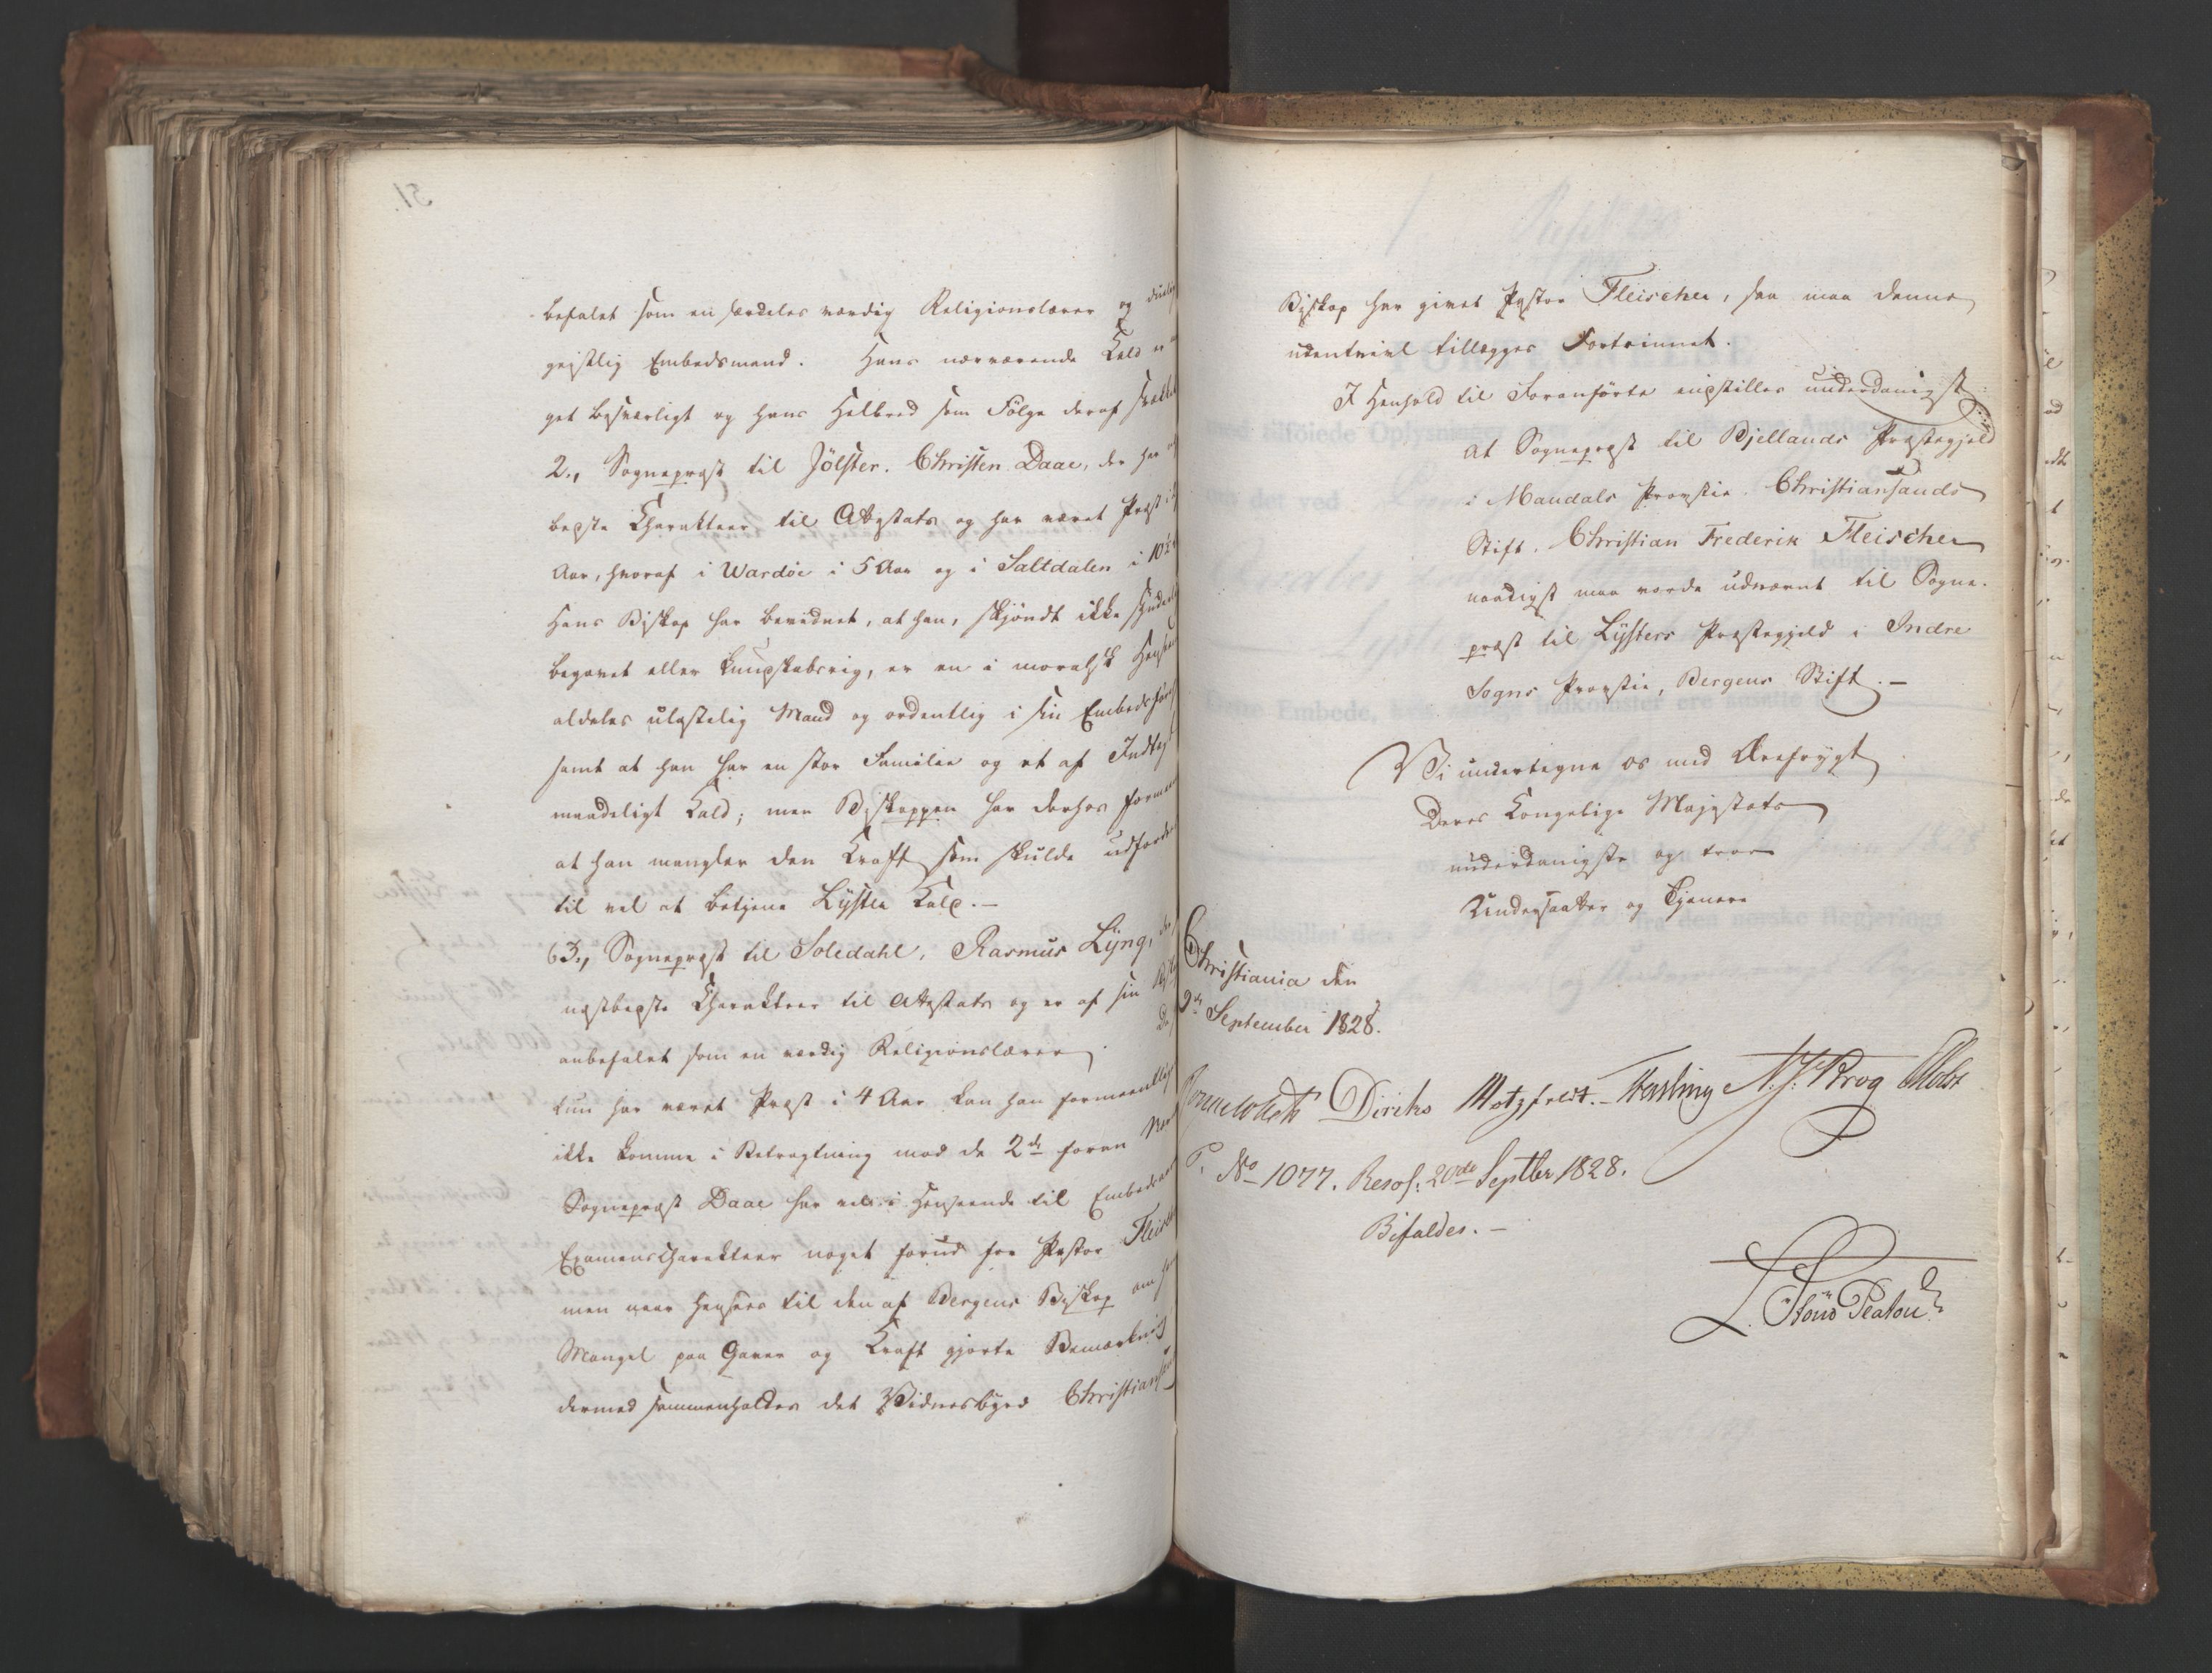 befalet som en særdeles værdig Religionslærer og duelig
geistlig Embedsmand. Hans nærværende Kald er
get besværligt og hans Helbred som Fölge deraf svækket
2., Sognepræst til Jölster. Christen Daae, der har
bedste Charakteer til Attestats og har været Præst i
Aar, hvoraf i Wardöe i 5 Aar og i Saltdalen i 10½
Hans Biskop har bevidnet, at han, skjöndt ikke synderlig
begavet eller kundskabsrig, er en i moralsk Hensee
aldeles ulastelig Mand og ordentlig i sin Embedsföre
samt at han har en stor Familie og et af Indtægt
maadeligt Kald; men Biskoppen har derhos formeent
at han mangler den Kraft som skulde udfordres
til vel at betjene Lyster Kald.-
63., Sognepræst til Soledahl, Rasmus Lyng, der
næstbedste Charakteer til Attestats og er af sin Biskop
anbefalet som en værdig Religionslærer. Da
kun har været Præst i 4 Aar kan han formeentlig
ikke komme i Betragtning mod de 2de foran
Sognepræst Daae har vel i Henseende til Embeds
Examenscharakteer noget forud for Pastor Fleischer
men naar Hensees til den af Bergens Biskop om ham
Mangel paa Gaver og Kraft gjorte Bemærkning
dermed sammenholder det Vidnesbyrd Christiansands
Biskop har givet Pastor Fleischer, saa maa denne
udentvivl tillægges Fortrinnet.
I Henhold til Foranförte indstilles underdanigst:
At Sognepræst til Bjellands Præstegjeld
i Mandals Provstie. Christiansands
Stift. Christian Frederik Fleischer
naadigst maa vorde udnævnt til Sogne-
præst til Lysters Præstegjeld i Indre
Sogns Provstie, Bergens Stift.-
Vi undertegne os med Ærefrygt
Deres Kongelige Majestæts
underdanigste og troe
Undersaatter og Tjenere
Christiania den
9de September 1828.
Sommerhielm Diriks Motzfeldt.- Fasting N. J. Krog Holst
P. No 1077. Resol: 20de Septbr 1828.
Bifaldes.-